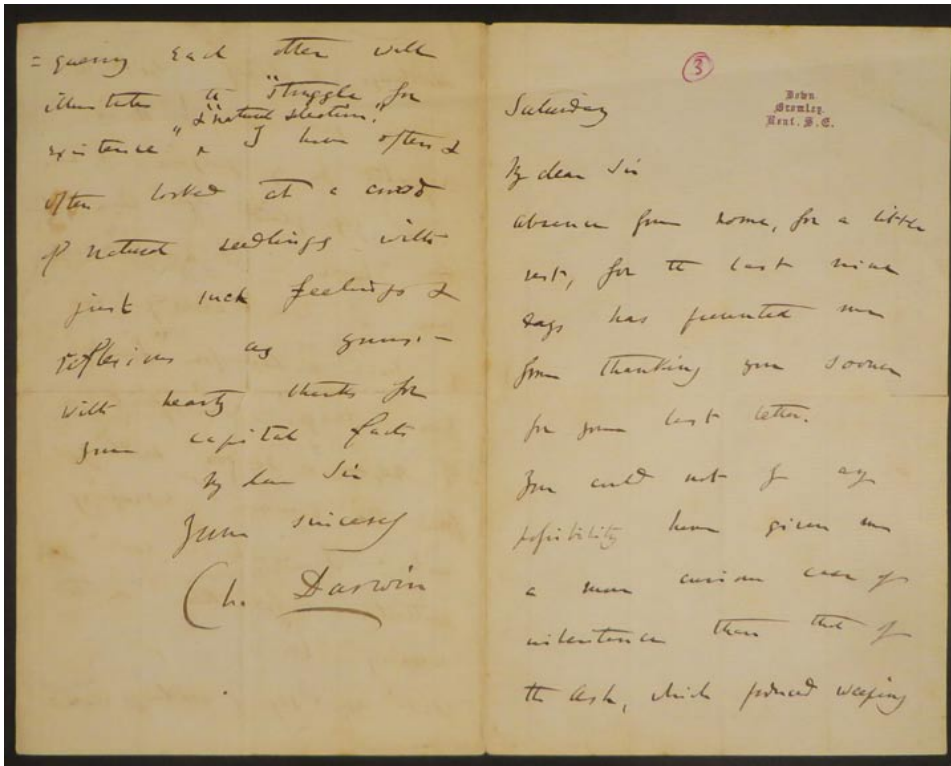 =quering each other well
illustrates the "struggle for
& "natural selection."
existence" ^ I have often &
often looked at a crowd
of natural seedlings with
just such feelings &
reflexions as yours.—
With hearty thanks for
your capital facts
My dear Sir
Yours sincerely
Ch. Darwin
3
Down.
Bromley.
Kent. S.E.
Saturday
My dear Sir
absence from home, for a little
rest, for the last nine
days has prevented me
from thanking you sooner
for your last letter.
You could not by any
possibility have given me
a more curious case of
inheritance than that of
the Ash, which produced weeping